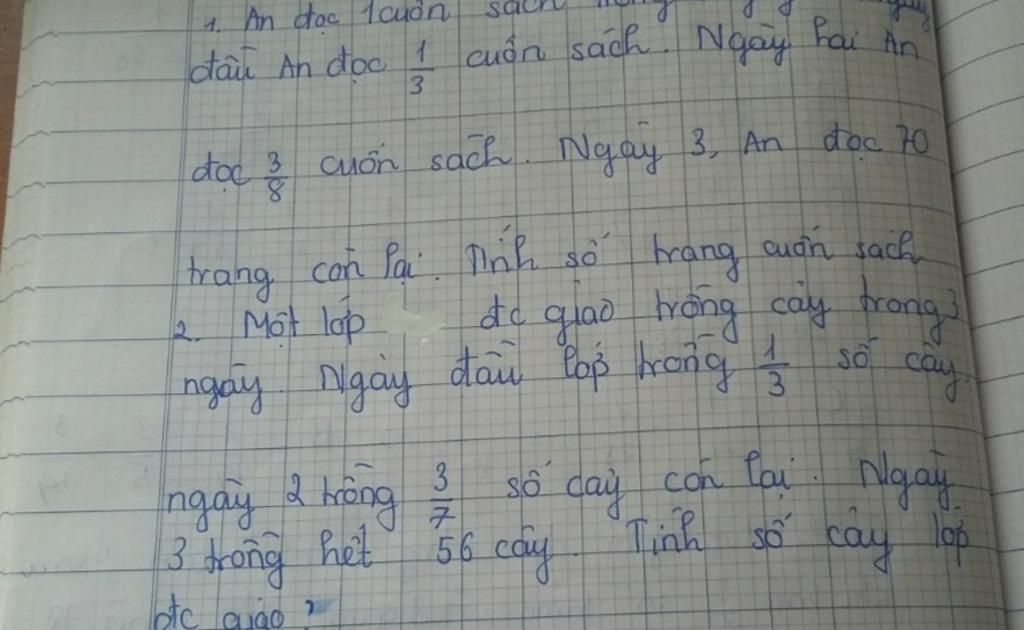 1. An đọc 1 cuốn sách
đầu An đọc 1/3 cuốn sách. Ngày hai An
đọc 3/8 cuốn sách. Ngày 3, An đọc 70
trang còn lại. Tính số trang cuốn sách
2. Một lớp đc giao trồng cây trong 3
ngày. Ngày đầu lớp trồng 1/3 số cây.
ngày 2 trồng 3/7 số cây còn lại. Ngày
3 trồng hết 56 cây. Tính số cây lớp
đc giao?